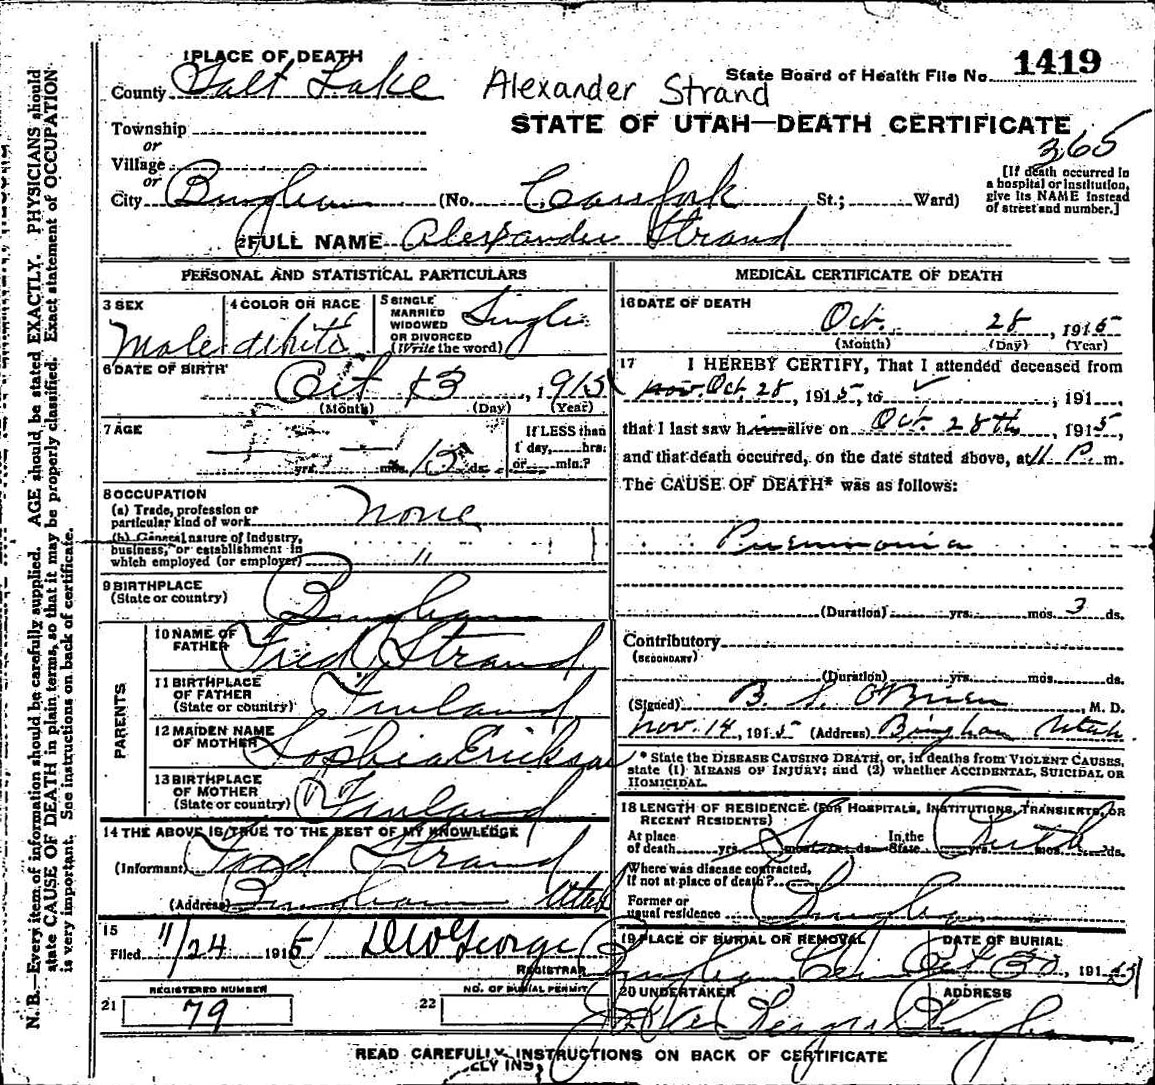 1 PLACE OF DEATH
State Board of Health File No. 1419
County Salt Lake Alexander Strand
Township
STATE OF UTAH—DEATH CERTIFICATE
or
365
Village
or
[If death occurred in a hospital or institution, give its NAME instead of street and number.]
City Bingham (No. Carrfork St.; Ward)
2 FULL NAME Alexander Strand
PERSONAL AND STATISTICAL PARTICULARS
3 SEX
Male
4 COLOR OR RACE
White
5 SINGLE
MARRIED
WIDOWED
OR DIVORCED
(Write the word)
Single
6 DATE OF BIRTH
Oct 13, 1915
(Month) (Day) (Year)
7 AGE
yrs. mos. 15 ds.
If LESS than
1 day, hrs.
or min.?
8 OCCUPATION
(a) Trade, profession or
particular kind of work None
(b) General nature of industry,
business, or establishment in
which employed (or employer) "
9 BIRTHPLACE
(State or country) Bingham
PARENTS
10 NAME OF
FATHER Fred Strand
11 BIRTHPLACE
OF FATHER
(State or country) Finland
12 MAIDEN NAME
OF MOTHER Sophia Erickson
13 BIRTHPLACE
OF MOTHER
(State or country) Finland
14 THE ABOVE IS TRUE TO THE BEST OF MY KNOWLEDGE
(Informant) Fred Strand
(Address) Bingham Utah
15
Filed 11/24 1915 D W George
REGISTRAR
21 REGISTERED NUMBER
79
22 NO. OF BURIAL PERMIT
MEDICAL CERTIFICATE OF DEATH
16 DATE OF DEATH
Oct. 28, 1915
(Month) (Day) (Year)
17 I HEREBY CERTIFY, That I attended deceased from
Nov. Oct. 28, 1915, to 191
that I last saw him alive on Oct. 28th, 1915,
and that death occurred, on the date stated above, at 11 P. m.
The CAUSE OF DEATH* was as follows:
Pneumonia
(Duration) yrs. mos. 3 ds.
Contributory
(SECONDARY)
(Duration) yrs. mos. ds.
(Signed) B. S. O'Brien, M. D.
Nov. 14, 1915 (Address) Bingham Utah.
* State the DISEASE CAUSING DEATH, or, in deaths from VIOLENT CAUSES,
state (1) MEANS OF INJURY; and (2) whether ACCIDENTAL, SUICIDAL OR
HOMICIDAL.
18 LENGTH OF RESIDENCE (FOR HOSPITALS, INSTITUTIONS, TRANSIENTS, OR
RECENT RESIDENTS)
At place In the
of death yrs. mos. ds. State yrs. mos. ds.
Where was disease contracted,
if not at place of death?
Former or
usual residence Bingham
19 PLACE OF BURIAL OR REMOVAL
Bingham Cem
DATE OF BURIAL
Oct 30, 1915
20 UNDERTAKER
ADDRESS
Bingham
READ CAREFULLY INSTRUCTIONS ON BACK OF CERTIFICATE
LLY INS
N. B.—Every item of information should be carefully supplied. AGE should be stated EXACTLY. PHYSICIANS should
state CAUSE OF DEATH in plain terms, so that it may be properly classified. Exact statement of OCCUPATION
is very important. See instructions on back of certificate.